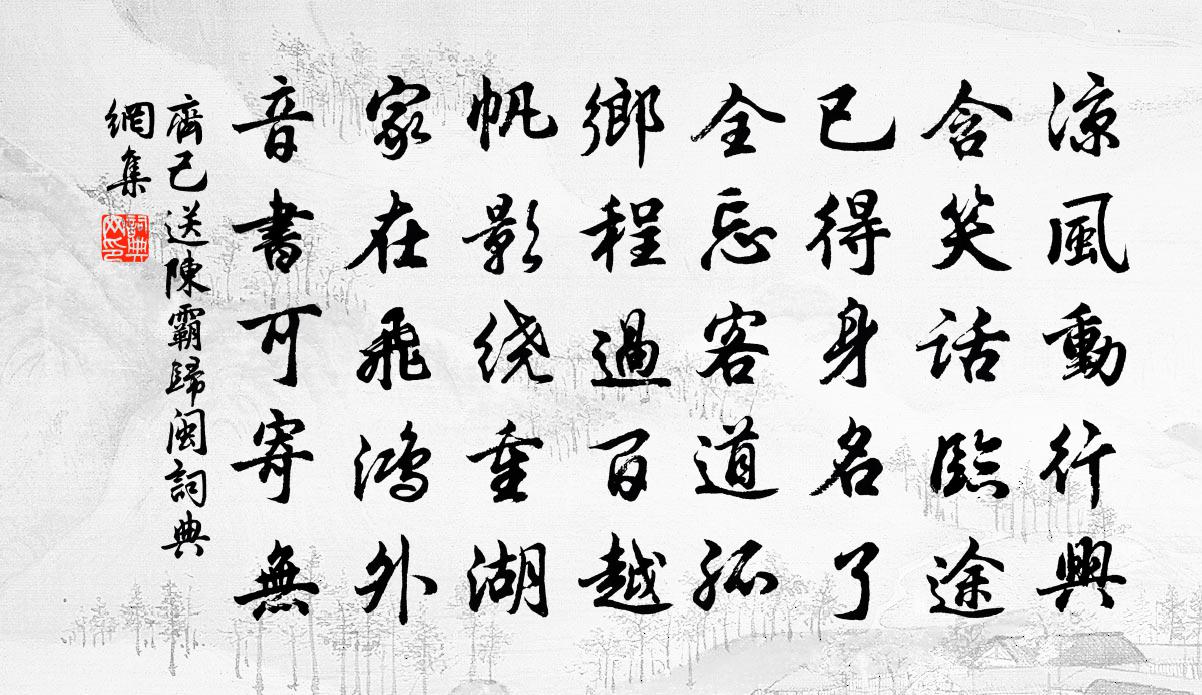 涼風動行興
含笑話臨途
已得身名了
全忘客道孤
鄉程過百越
帆影绕重湖
家在飛鴻外
音書可寄無
齊己送陳霸歸闽詞典
網集
詞典